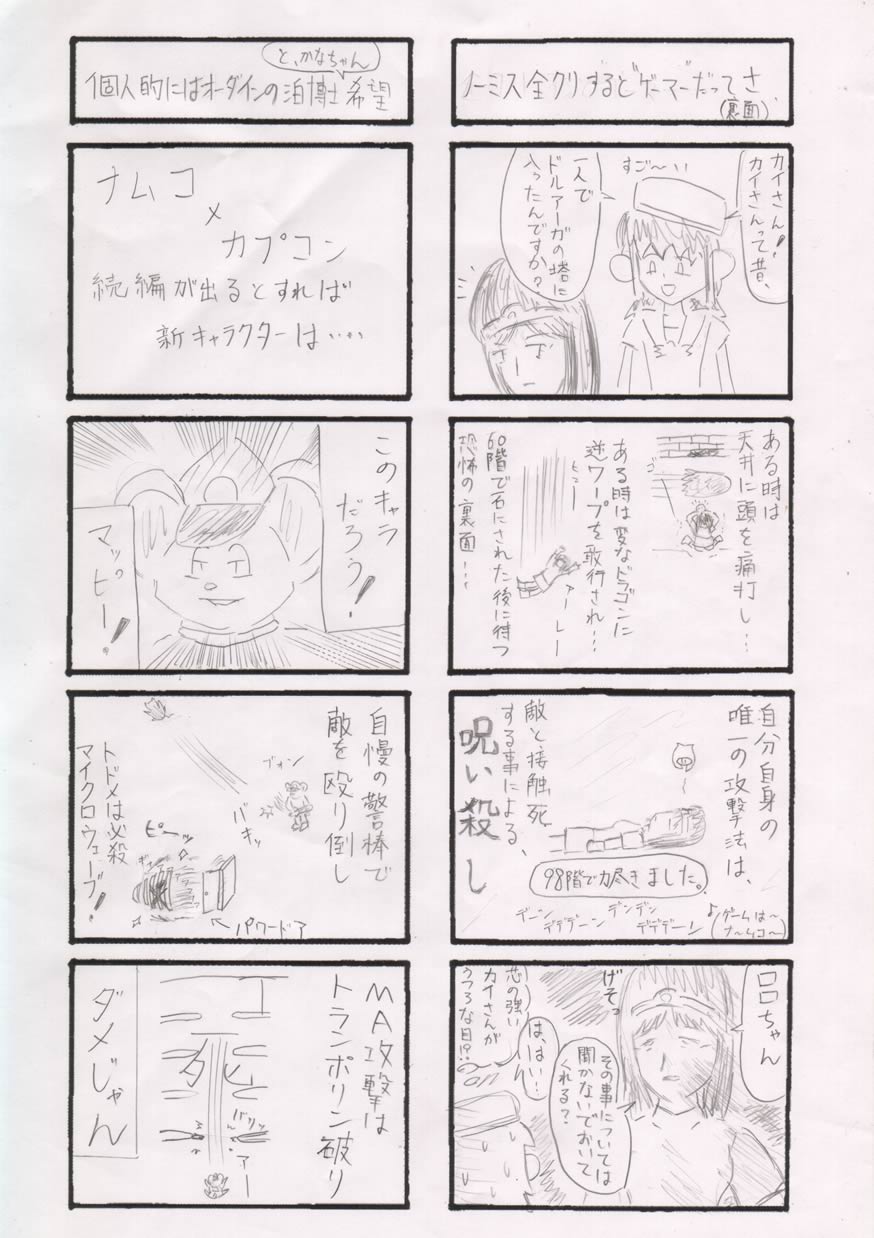 ノーミス全クリするど“ゲーマー”だってさ
(裏面)
カイさん!
カイさんって昔、
すご〜い
一人で
ドルアーガの塔に
入ったんですか?
ある時は
天井に頭を痛打し…
ゴ
ある時は変なドラゴンに
逆ワープを敢行され…
ヒュー
アーレー
60階で石にされた後に待つ
恐怖の裏面…
自分自身の
唯一の攻撃法は、
敵と接触死
する事による、
呪い殺し
98階で力尽きました。
デーン
デデデーン
デンデン
デデデーン
♪(ゲームは〜
ナ〜ムコ〜)
ロロちゃん
げそっ
その事については
聞かないでおいて
くれる?
は、はい…
芯の強い
カイさんが
うつろな目!?
と、かなちゃん
個人的にはオーダインの泊博士希望
ナムコ
×
カプコン
続編が出るとすれば
新キャラクターは…‥
このキャラ
だろう!
マッピー!
自慢の警棒で
敵を殴り倒し
ブォン
バキッ
ピーッ
ギャー
トドメは必殺
マイクロウェーブ!
パワードア
MA攻撃は
トランポリン破り
バリッ
アー
ダメじゃん